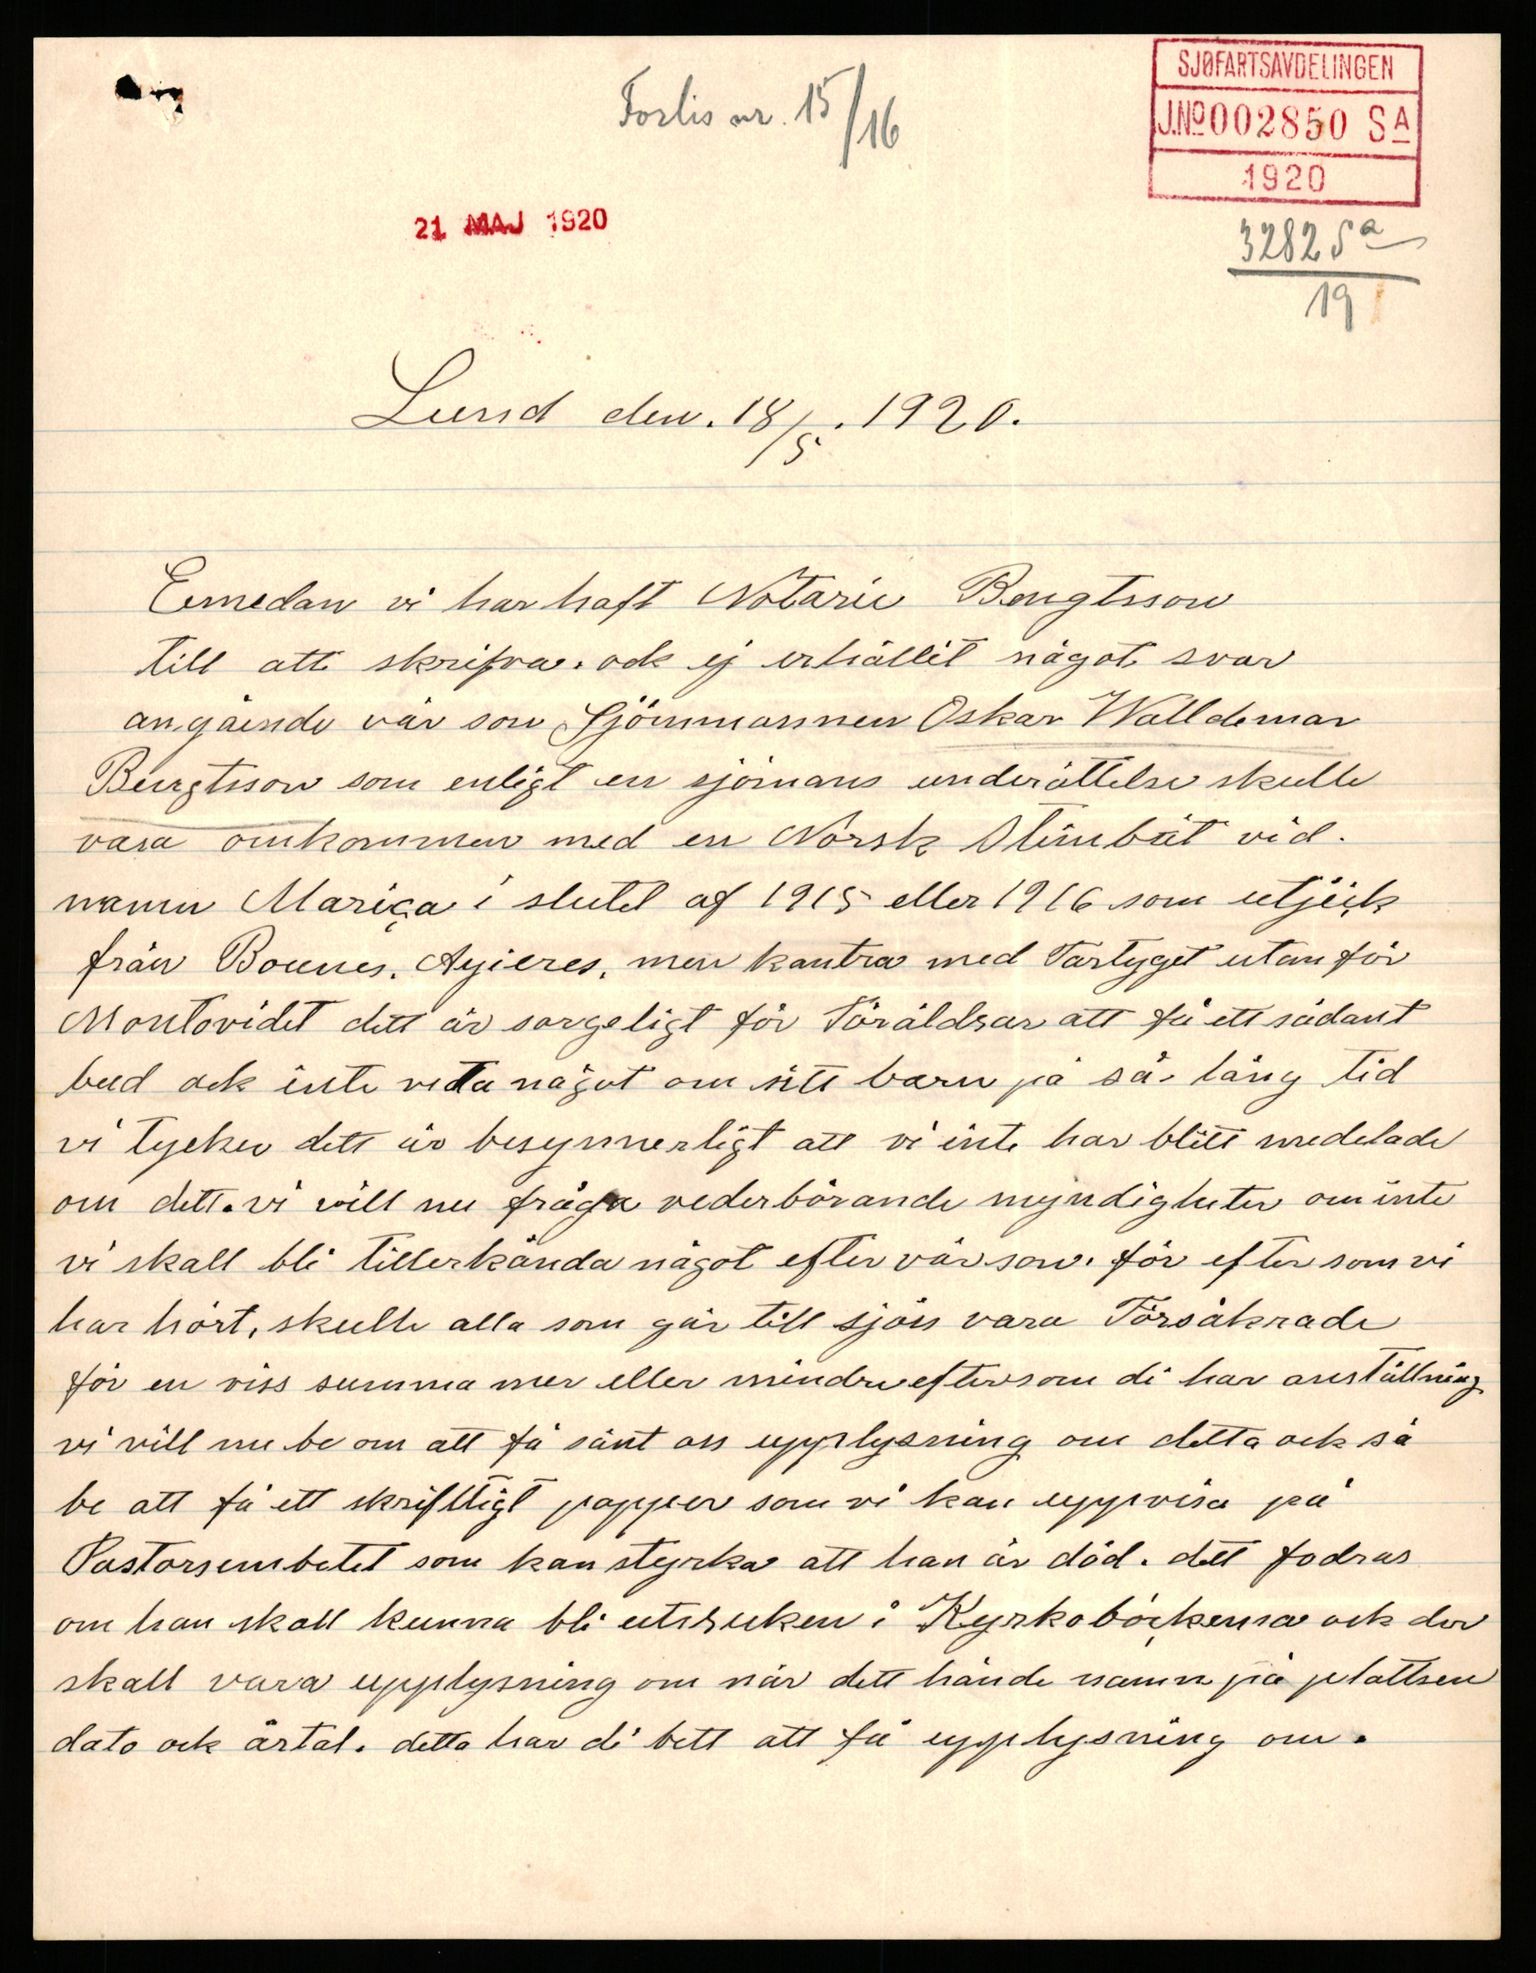 Forlis nr. 15/16
SJØFARTSAVDELINGEN
J.No 002850 SA
1920
3282 Sa
19
21 MAJ 1920
Lund den. 18/5. 1920.
Emedan vi har haft Notarie Bengtsson
till att skrifva. ock ej erhållit något svar
angående vår son Sjömmannen Oskar Walldemar
Bengtsson som enligt en sjömans underättelse skulle
vara omkommen med en Norsk Stimbåt vid.
namn Mariça i slutet af 1915 eller 1916 som utjick
från Bounes. Ayieres. men kantra med Fartyget utanför
Montovidet dett är sorgeligt för Föräldrar att få ett sådant
bud ock inte veta något om sitt barn på så lång tid
vi tycker dett är besynnerligt att vi inte har blitt medelade
om dett. vi vill nu fråga vederbörande myndigheter om inte
vi skall bli tillerkända något efter vår son. för efter som vi
har hört, skulle alla som går till sjös vara Försäkrade
för en viss summa mer eller mindre eftersom di har anställning
vi vill nu be om att få sänt oss upplysning om detta ock så
be att få ett skriftligt papper som vi kan uppvisa på
Pastorsembetet som kan styrka att han är död. dett fodras
om han skall kunna bli utstruken i Kyrkoböckerna ock der
skall vara upplysning om när dett hände namn på plattsen
dato ock årtal. detta har di bett att få upplysning om.